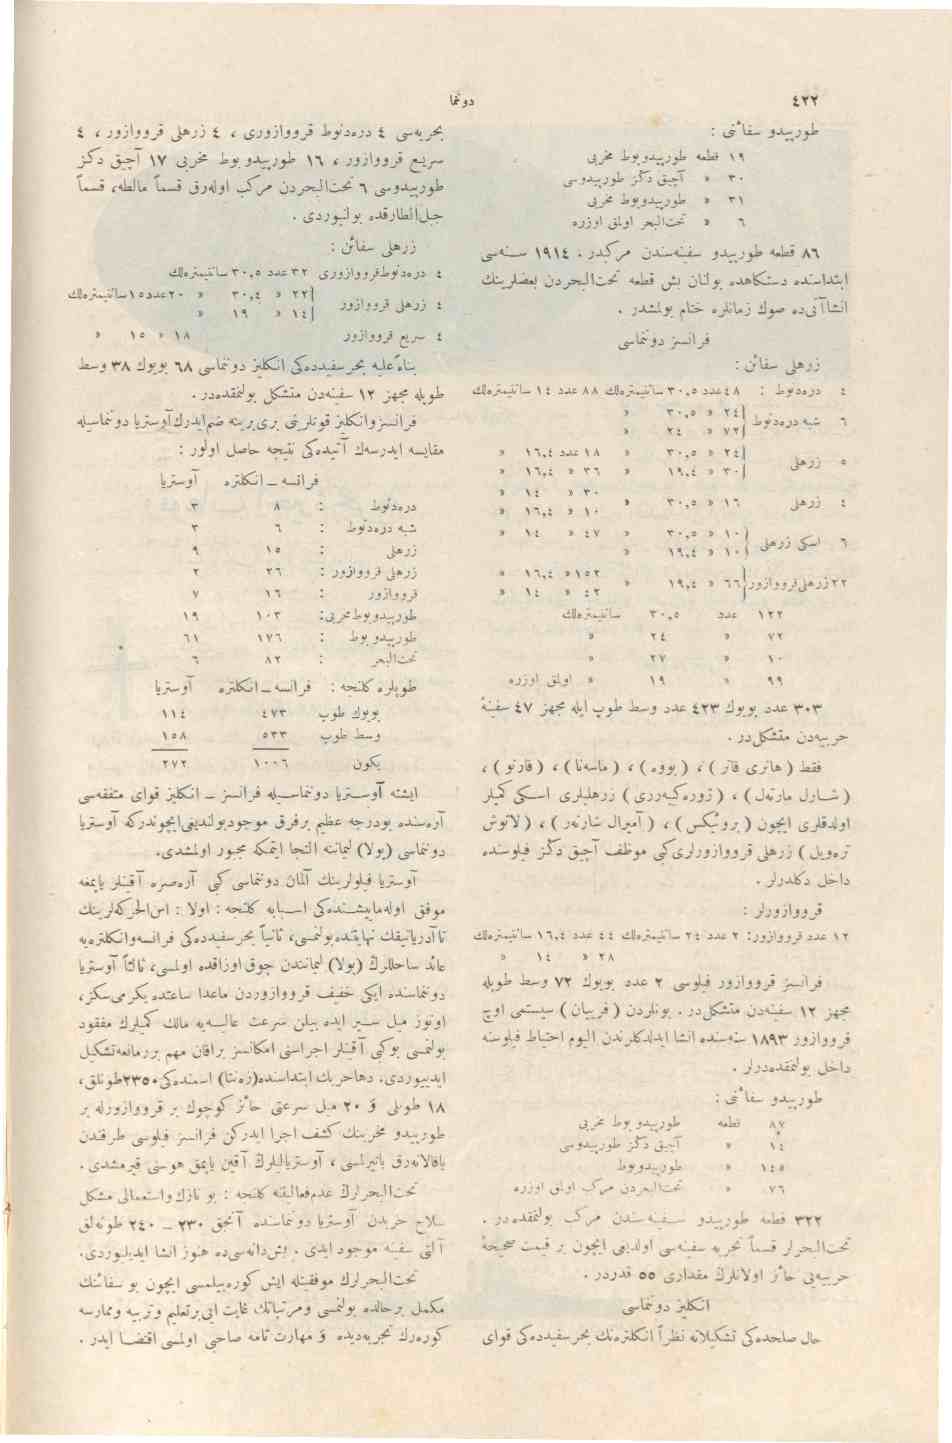 ٤٢٢
دوننما
طورپیدو سفائنی :
١٩ قطعه طورپیدوبوط مخربی
٣٠ » آچیق دكز طورپیدوسی
٣١ » طورپیدوبوط مخربی
٦ » تحت‌البحر اولمق اوزره
٨٦ قطعه طورپیدو سفینه‌سندن مركبدر . ١٩١٤ سنه‌سی
ابتداسنده دستكاهده بولنان بش قطعه تحت‌البحردن بعضلرینك
انشاآتی‌ده صوك زمانلره ختام بولمشدر .
فرانسز دوننماسی
زرهلی سفائن :
٤ دره‌دنوط : ٤٨ عدد ٣٠،٥ سانتیمتره‌لك ٨٨ عدد ١٤ سانتیمتره‌لك
٦ شبه دره‌دنوط ٢٤ » ٣٠،٥ »
٧٢ » ٢٤ »
٥ زرهلی ٢٤ » ٣٠،٥ » ١٨ عدد ١٦،٤ »
٣٠ » ١٩،٤ » ٣٦ » ١٦،٤ »
٣٠ » ١٤ »
٤ زرهلی ١٦ » ٣٠،٥ » ١٠ » ١٦،٤ »
٦ اسكی زرهلی ١٠ » ٣٠،٥ » ٤٧ » ١٤ »
١٠ » ١٩،٤ »
٢٢ زرهلی قرووازور ٦٦ » ١٩،٤ » ١٥٢ » ١٦،٤ »
٤٢ » ١٤ »
١٢٢ عدد ٣٠،٥ سانتیمتره‌لك
٧٢ » ٢٤ »
١٠ » ٢٧ »
٩٩ » ١٩ » اولمق اوزره
٣٠٣ عدد بویوك ٤٢٣ عدد وسط طوپ ایله مجهز ٤٧ سفینهٔ
حربیه‌دن متشكلدر .
فقط ( هانری قاتر ) ، ( بووه ) ، ( ماسه‌نا ) ، ( قارنو ) ،
( شارل مارته‌ل ) ، ( ژوره‌كیبه‌رری ) زرهلیلری اسكی كمیلر
اولدقلری ایچون ( بروئیكس ) ، ( آمیرال شارنه‌ر ) ، ( لاتوش
تره‌ویل ) زرهلی قرووازورلری كبی موظف آچیق دكز فیلوسنده
داخل دكلدرلر .
قرووازورلر :
١٢ عدد قرووازور : ٢ عدد ٢٤ سانتیمتره‌لك ٤٤ عدد ١٦،٤ سانتیمتره‌لك
٢٨ » ١٤ »
فرانسز قرووازور فیلوسی ٢ عدد بویوك ٧٢ وسط طوپله
مجهز ١٢ سفینه‌دن متشكلدر . بونلردن ( فریبان ) سیستمی اوچ
قرووازور ١٨٩٣ سنه‌سنده انشا ایدلدكلرندن الیوم احتیاط فیلوسنه
داخل بولنمقده‌درلر .
طورپیدو سفائنی :
٨٧ قطعه طورپیدو بوط مخربی
١٤ » آچیق دكز طورپیدوسی
١٤٥ » طورپیدوبوط
٧٦ » تحت‌البحردن مركب اولمق اوزره
٣٢٢ قطعه طورپیدو سفینه‌سندن مركب بولنمقده‌در .
تحت‌البحرلر قسماً تجربه سفینه‌سی اولدیغی ایچون بر قیمت صحیحهٔ
حربیه‌یی حائز اولانلرك مقداری ٥٥ قدردر .
انكلیز دوننماسی
حال صلحده‌كی تشكیلاته نظراً انكلتره‌نك بحرسفیدده‌كی قوای
بحریه‌سی ٤ دره‌دنوط قرووازوری ، ٤ زرهلی قرووازور ، ٤
سریع قرووازور ، ١٦ طورپیدوبوط مخربی ١٧ آچیق دكز
طورپیدوسی ٦ تحت‌البحردن مركب اوله‌رق قسماً مالطه، قسماً
جبل‌الطارقده بولنیوردی .
زرهلی سفائن :
٤ دره‌دنوط قرووازوری ٣٢ عدد ٣٠،٥ سانتیمتره‌لك
٤ زرهلی قرووازور ٢٢ » ٣٠،٤ » ٢٠ عدد ١٥ سانتیمتره‌لك
١٤ » ١٩ »
٤ سریع قرووازور ١٨ » ١٥ »
بناءً علیه بحرسفیدده‌كی انكلیز دوننماسی ٦٨ بویوك ٣٨ وسط
طوپله مجهز ١٢ سفینه‌دن متشكل بولنمقده‌در .
فرانسز وانكلیز قوتلرینی بری‌برینه ضم‌ایدرك آوستریا دوننماسیله
مقایسه ایدرسه‌ك آتیده‌كی نتیجه حاصل اولور :
فرانسه ـ انكلتره آوستریا
دره‌دنوط : ٨ ٣
شبه دره‌دنوط : ٦ ٣
زرهلی : ١٥ ٩
زرهلی قرووازور : ٢٦ ٢
قرووازور : ١٦ ٧
طورپیدوبوط مخربی: ١٠٣ ١٩
طورپیدو بوط : ١٧٦ ٦١
تحت‌البحر : ٨٢ ٦
طوپلره كلنجه : فرانسه ـ انكلتره آوستریا
بویوك طوپ ٤٧٣ ١١٤
وسط طوپ ٥٣٣ ١٥٨
یكون ١٠٠٦ ٢٧٢
ایشته آوستریا دوننماسیله فرانسز ـ انكلیز قوای متفقه‌سی
آره‌سنده بودرجه عظیم برفرق موجودبولندیغی‌ایچوندركه آوستریا
دوننماسی (پولا) لیماننه التجا ایتمكه مجبور اولمشدی.
آوستریا فیلولرینك آلمان دوننماسی كبی آره‌صره آقینلر یاپمغه
موفق اوله‌مایشنده‌كی اسبابه كلنجه : اولا : اس‌الحركه‌لرینك
تاآدریاتیقك نهایتنده‌بولنمسی، ثانیاً بحرسفیدده‌كی فرانسه‌وانكلتره‌یه
عائد ساحللرك (پولا) لیمانندن چوق اوزاقده اولمسی، ثالثاً آوستریا
دوننماسنده ایكی خفیف قرووازوردن ماعدا ساعتده یكرمی‌سكز،
اوتوز میل سیر ایده بیلن سرعت عالیه‌یه مالك كمیلرك مفقود
بولنمسی بوكبی آقینلر اجراسنی امكانسز براقان مهم برمانعه‌تشكیل
ایدییوردی. دهاحربك ابتداسنده (زه‌نتا) اسمنده‌كی ٢٣٥٠طونلق،
١٨ طوپلی و ٢٠ میل سرعتی حائز كوچوك بر قرووازورله بر
طورپیدو مخربنك كشف اجرا ایدركن فرانسز فیلوسی طرفندن
یاقالانه‌رق باتیرلمسی ، آوستریالیلرك آقین یاپمق هوسنی قیرمشدی.
تحت‌البحرلرك عدم‌فعالیتنه كلنجه : بو نازك‌واستعمالی مشكل
سلاح حربدن آوستریا دوننماسنده آنجق ٢٣٠ ـ ٢٤٠ طونه‌لق
آلتی سفینه موجود ایدی . بش‌دانه‌سی‌ده هنوز انشا ایدیلیوردی.
تحت‌البحرلرك موفقیتله ایش كوره‌بیلمسی ایچون بو سفائنك
مكمل برحالده بولنمسی ومرتباتك غایت ایی‌برتعلیم وتربیه وممارسه
كوره‌رك تجربه‌دیده و مهارت تامه صاحبی اولمسی اقتضا ایدر .